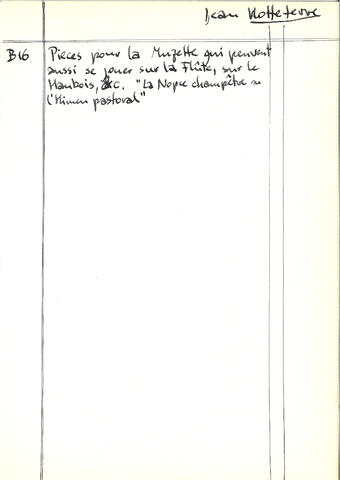 Jean Hotteterre
B16 Pieces pour la Muzette qui peuvent
aussi se jouer sur la Flûte, sur le
Haubois, &c. "La Nopce champêtre ou
l'Himen pastoral"